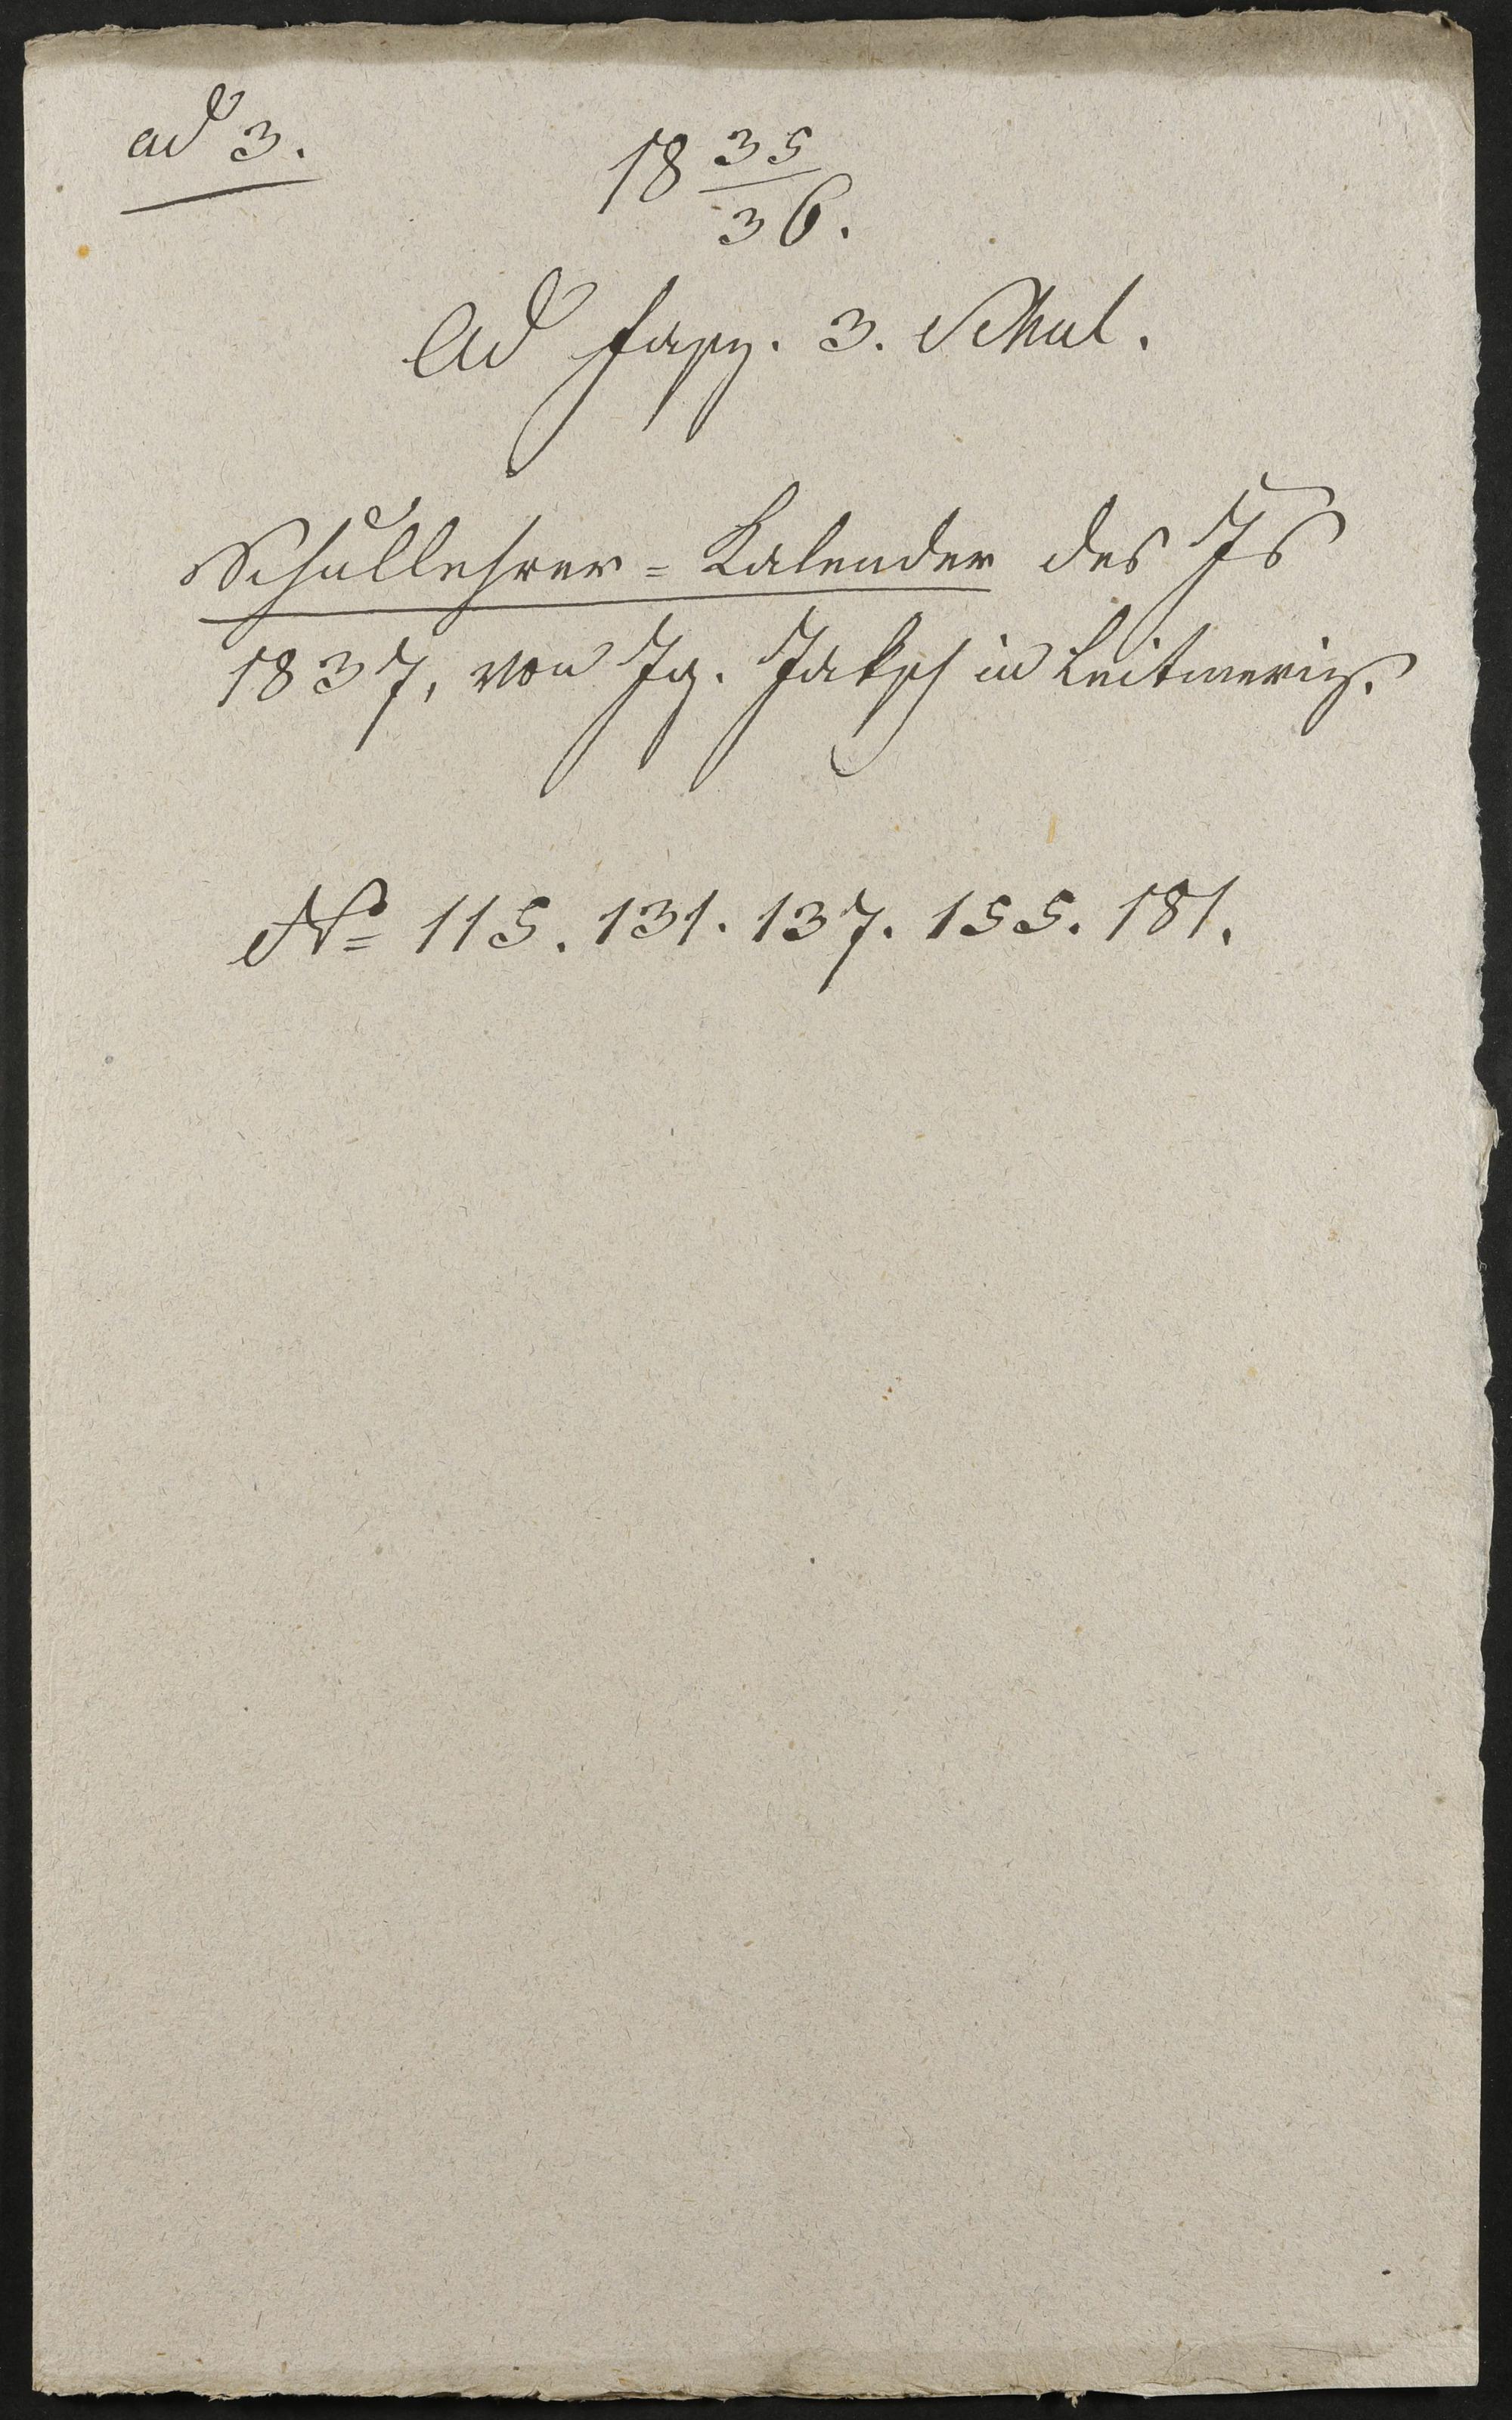 ad 3.
18 35/36.
Ad fasz. 3. Schul.
Schullehrer=Kalender des Js
1837, von Ig. Jaksch in Leitmeriz.
No 115. 131. 137. 155. 181.